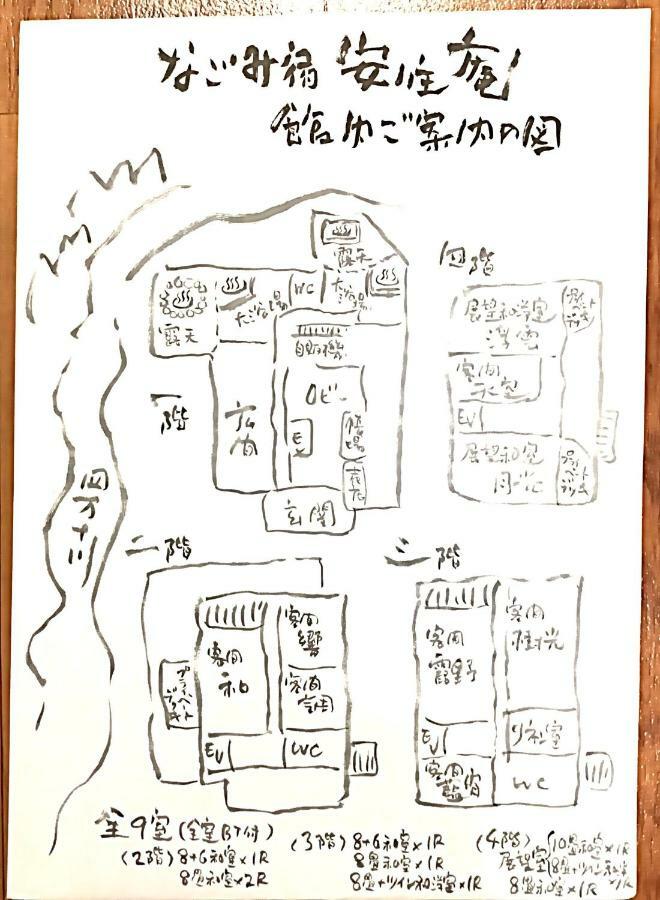 なごみ宿 安住庵
館内ご案内の図
四万十川
一階
露天
大浴場
WC
大浴場
露天
自販機
ロビー
広間
EV
帳場
売店
玄関
四階
展望和洋室
浮雲
客間
EV
展望和室
二階
客間
響
客間
和
客間
プライベート
デッキ
EV
WC
三階
客間
霞野
客間
EV
客間
藍宵
WC
全9室(全室BT付)
(2階) 8+6和室×1R
8畳和室×2R
(3階) 8+6和室×1R
8畳和室×1R
8畳+ツイン和洋室×1R
(4階) 展望室
10畳和室×1R
8畳+ツイン和洋室×1R
8畳和室×1R